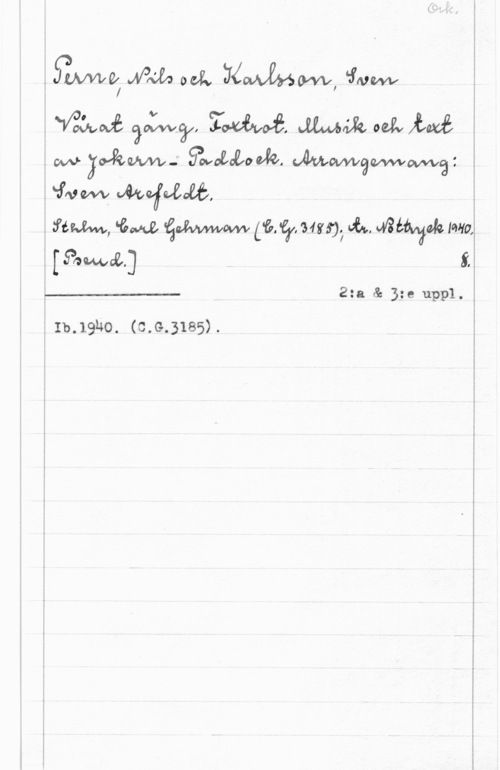 Ork.
Perne, Nils och Karlsson, Sven
Vårat gäng. Foxtrot. Musik och text
av Jokern - Paddock. Arrangemang:
Sven Arefeldt.
Sthlm, Carl Gehrman (C.G. 3185); tr. Nöttryck 1940.
[Pseud.] 8.
2:a & 3:e uppl.
Ib.1940. (C.G.3185).